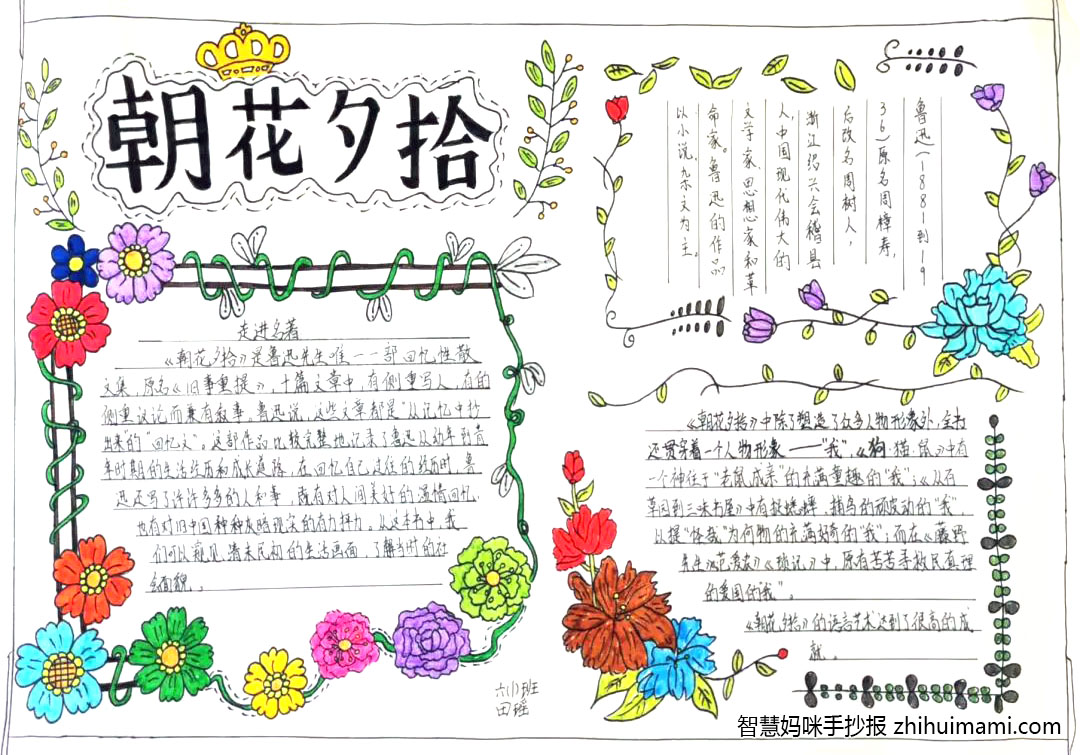 朝花夕拾
走进名著
《朝花夕拾》是鲁迅先生唯一一部回忆性散
文集，原名《旧事重提》，十篇文章中，有侧重写人，有的
侧重议论而兼有叙事，鲁迅说，这些文章都是“从记忆中抄
出来的”“回忆文”。这部作品比较完整地记录了鲁迅从幼年到青
年时期的生活经历和成长道路，在回忆自己过往的经历时，鲁
迅还写了许许多多的人和事，既有对人间美好的温情回忆，
也有对旧中国种种灰暗现实的有力抨击。从这本书中，我
们可以窥见清末民初的生活画面，了解当时的社
会面貌。
六(1)班
田瑶
鲁迅(1881到19
36)原名周樟寿，
后改名周树人，
浙江绍兴会稽县
人，中国现代伟大的
文学家、思想家和革
命家。鲁迅的作品
以小说、杂文为主。
《朝花夕拾》中除了塑造了众多人物形象外，全书
还贯穿着一个人物形象——“我”，《狗·猫·鼠》中有
一个神往于“老鼠成亲”的充满童趣的“我”；《从百
草园到三味书屋》中有捉蟋蟀，捕鸟的顽皮动的“我”，
以探“怪哉”为何物的充满好奇的“我”；而在《藤野
先生》《范爱农》《琐记》中，原有苦苦寻救民真理
的爱国的“我”。
《朝花夕拾》的语言艺术达到了很高的成
就。
智慧妈咪手抄报 zhihuimami.com